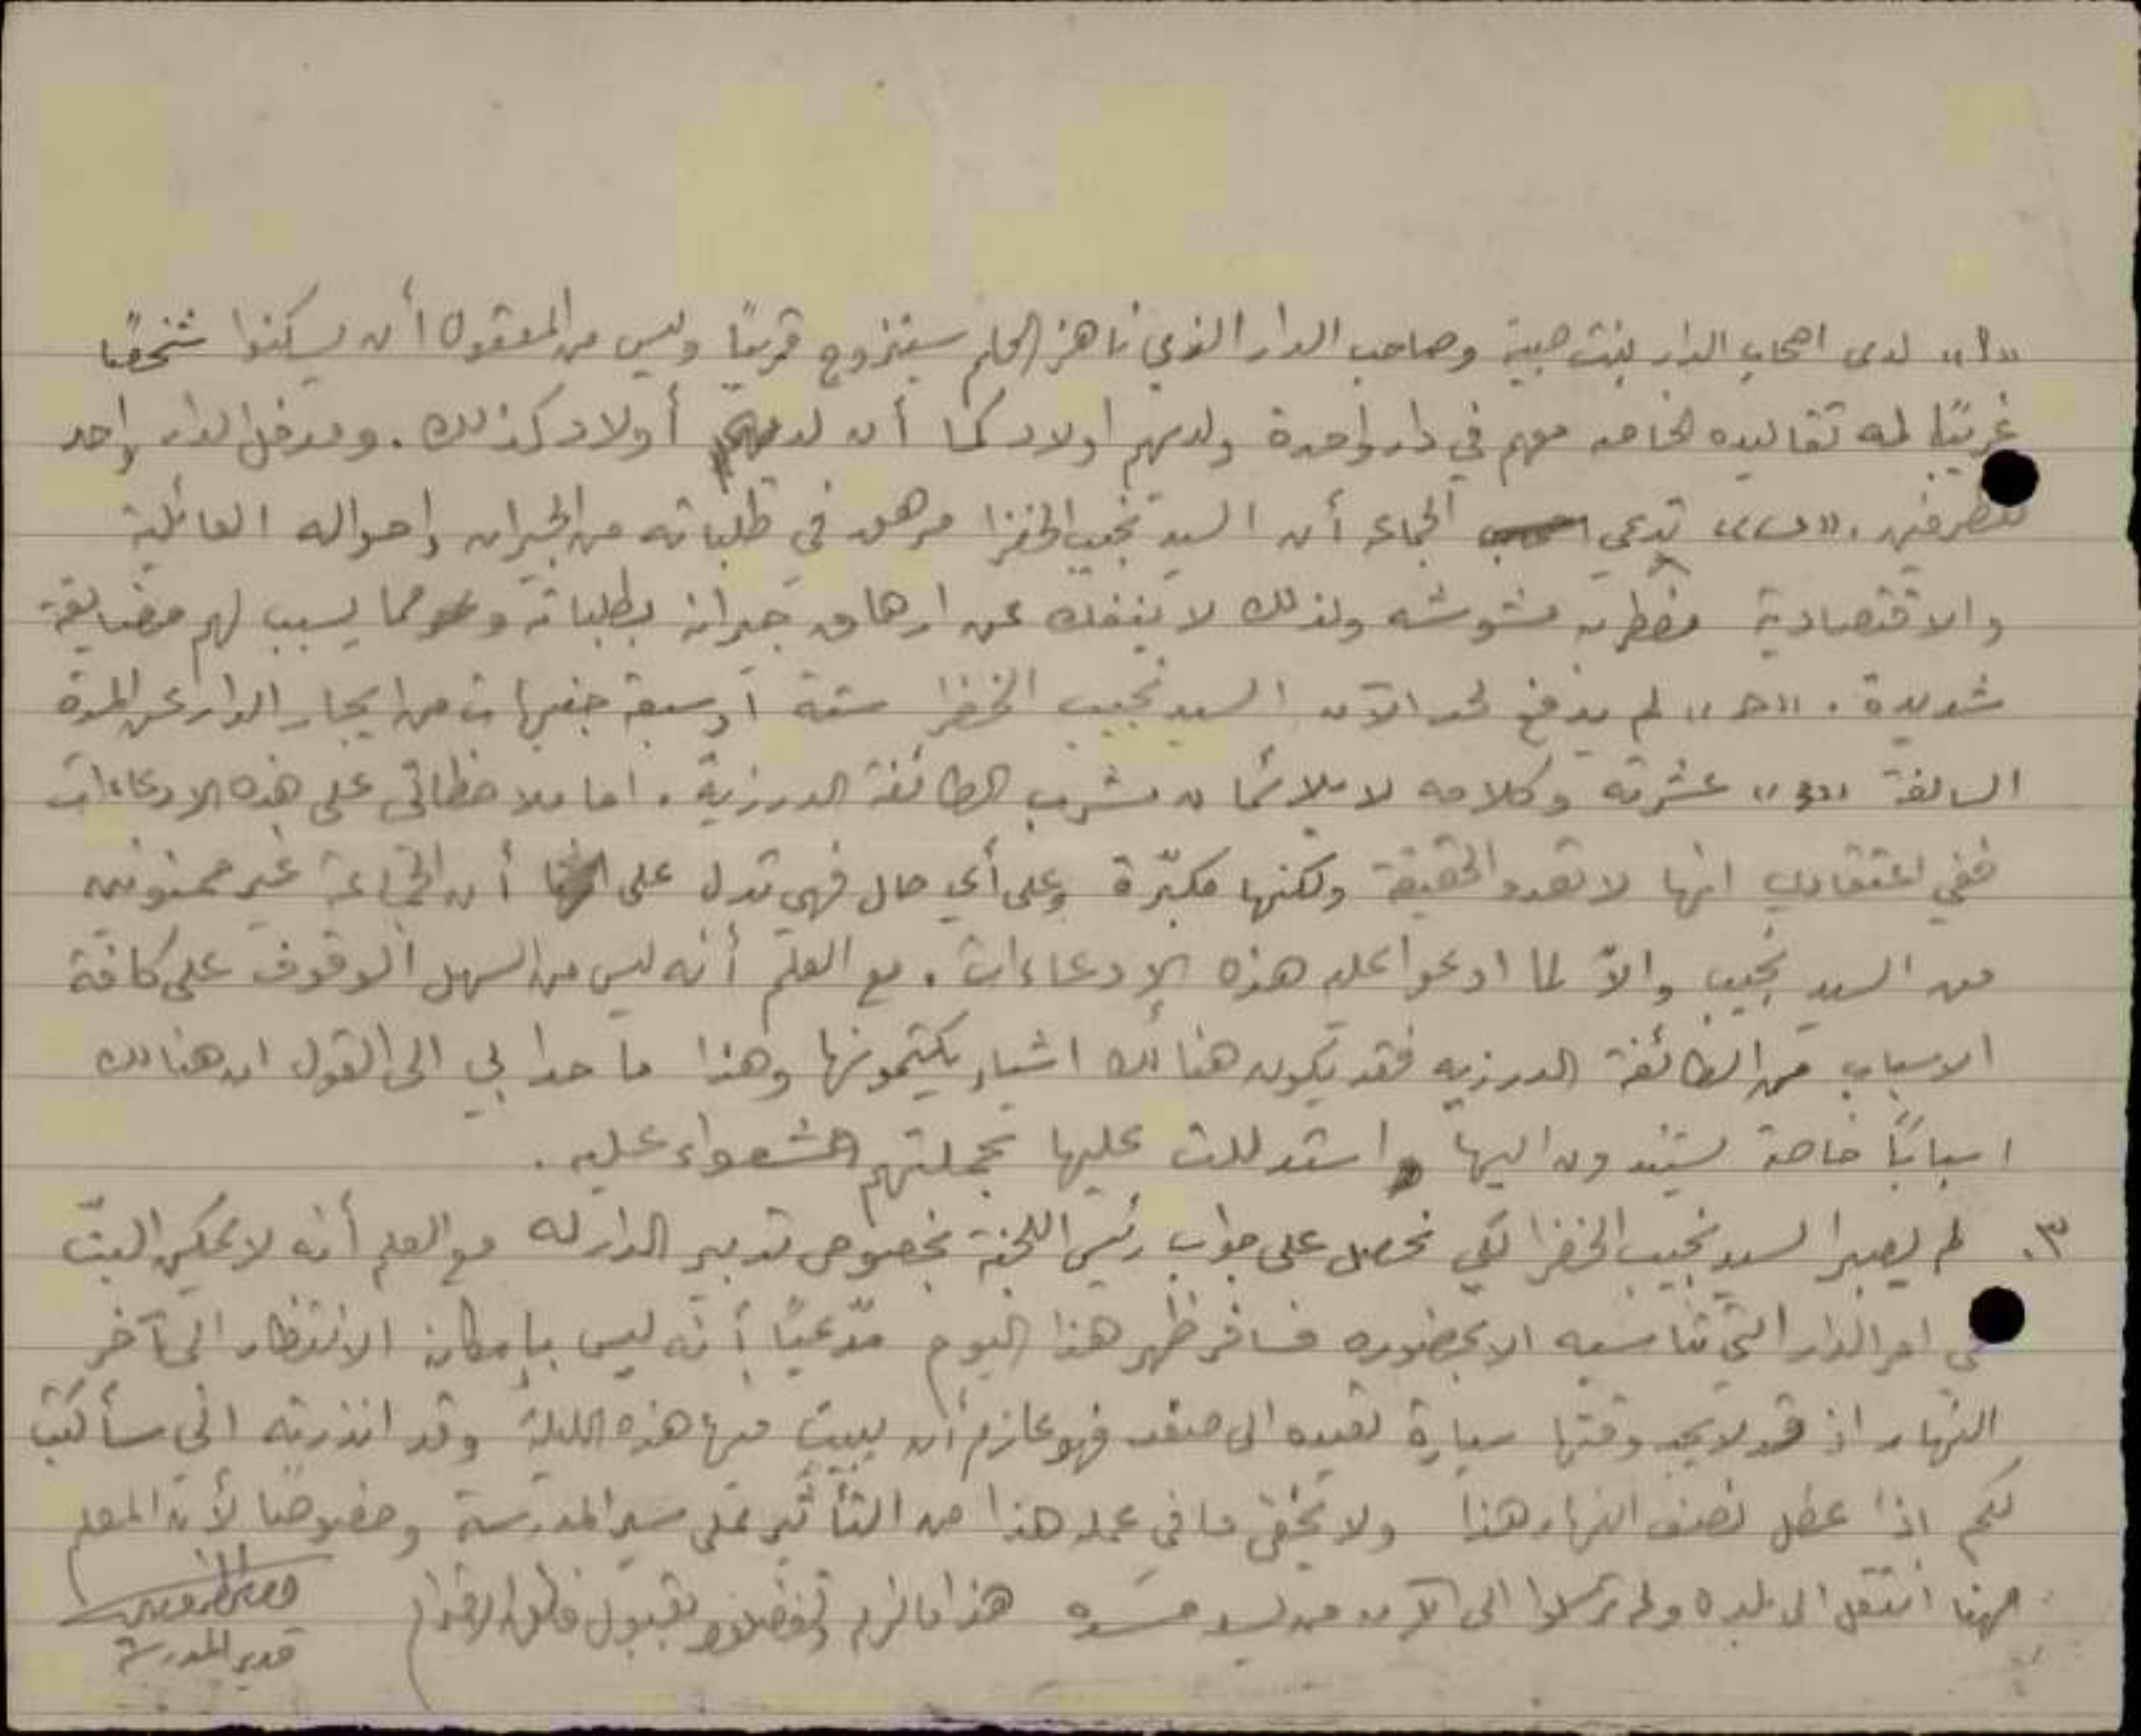 «ا» لدى اصحاب الدار بنت صبية وصاحب الدار الذي ناهز الحلم سيتزوج قريبًا وليس من المعقول أن يسكنوا شخصًا
غريبًا له تقاليده الخاصه معهم في دار واحدة ولديهم اولاد كما أن لديهم أولاد كذلك . ومدخل الدار واحد
للطرفين . «ب» تدعي الجماعه أن السيد نجيب الخفرا مرهق في طلباته من الجيران واحواله العائلية
والاقتصادية مضطربه مشوشه ولذلك لا ينفك عن ارهاق جيرانه بطلباته مما يسبب لهم مضايقة
شديدة . «حـ» لم يدفع لحد الآن السيد نجيب الخفرا ستة أو سبعة جنيهات من ايجار الدار عن المدة
السالفة «د» عشرته وكلامه لا يلائمان مشرب الطائفة الدرزية . اما ملاحظاتي على هذه الادعاءات
ففي اعتقادي انها لا تعدو الحقيقة ولكنها مكبّرة وعلى أي حال فهي تدل على أن الجماعة غير ممنونين
من السيد نجيب والاّ لما ادعوا عليه هذه الإدعاءات . مع العلم أنه ليس من السهل الوقوف على كافة
الاسباب من الطائفة الدرزيه فقد يكون هنالك اشياء يكتمونها وهذا ما حدا بي الى القول ان هنالك
اسبابًا خاصة يستندون اليها استدللت عليها بحملتهم الشعواء عليه .
٣. لم يصبر السيد نجيب الخفرا لكي نحصل على جواب رئيس اللجنة بخصوص تدبير الدار له مع العلم أنه لا يمكن البتّ
في امر الدار التي تناسبه الا بحضوره فسافر ظهر هذا اليوم مدّعيًا أنه ليس بإمكانه الانتظار الى آخر
النهار اذ قد لا يجد وقتها سيارة تعيده الى صفد فهو عازم أن يبيت فيها هذه الليلة وقد انذرته اني سأكتب
لكم اذا عطل نصف النهار هذا ولا يخفى ما في عمله هذا من التأثير على سير المدرسة وخصوصًا لأن المعلم
مهنا انتقل الى بلده ولم ترسلوا الى الآن من يسد مسده هذا ما لزم وتفضلوا بقبول فائق الاحترام
مدير المدرسة